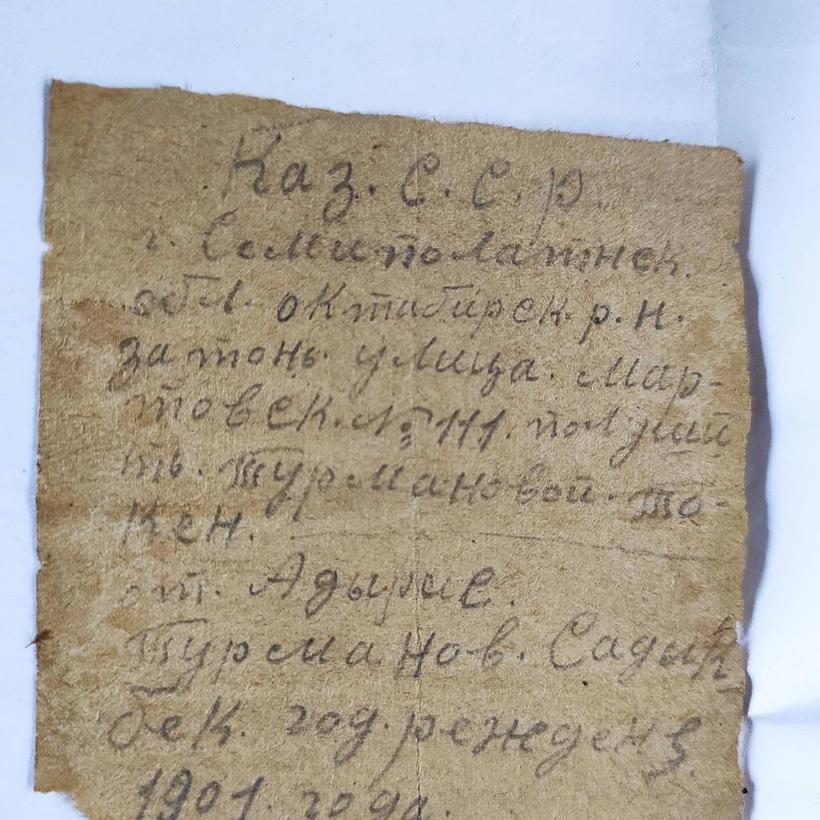 Каз. С. С. р.
г. Семиполатнск.
обл. октабирск. р. н.
затонь улица. Мар-
товск. № 111. полушй
ть. Турмановой. То-
кен.
от. Адырис.
Турманов. Садык
бек. год. режедень
1901. года.